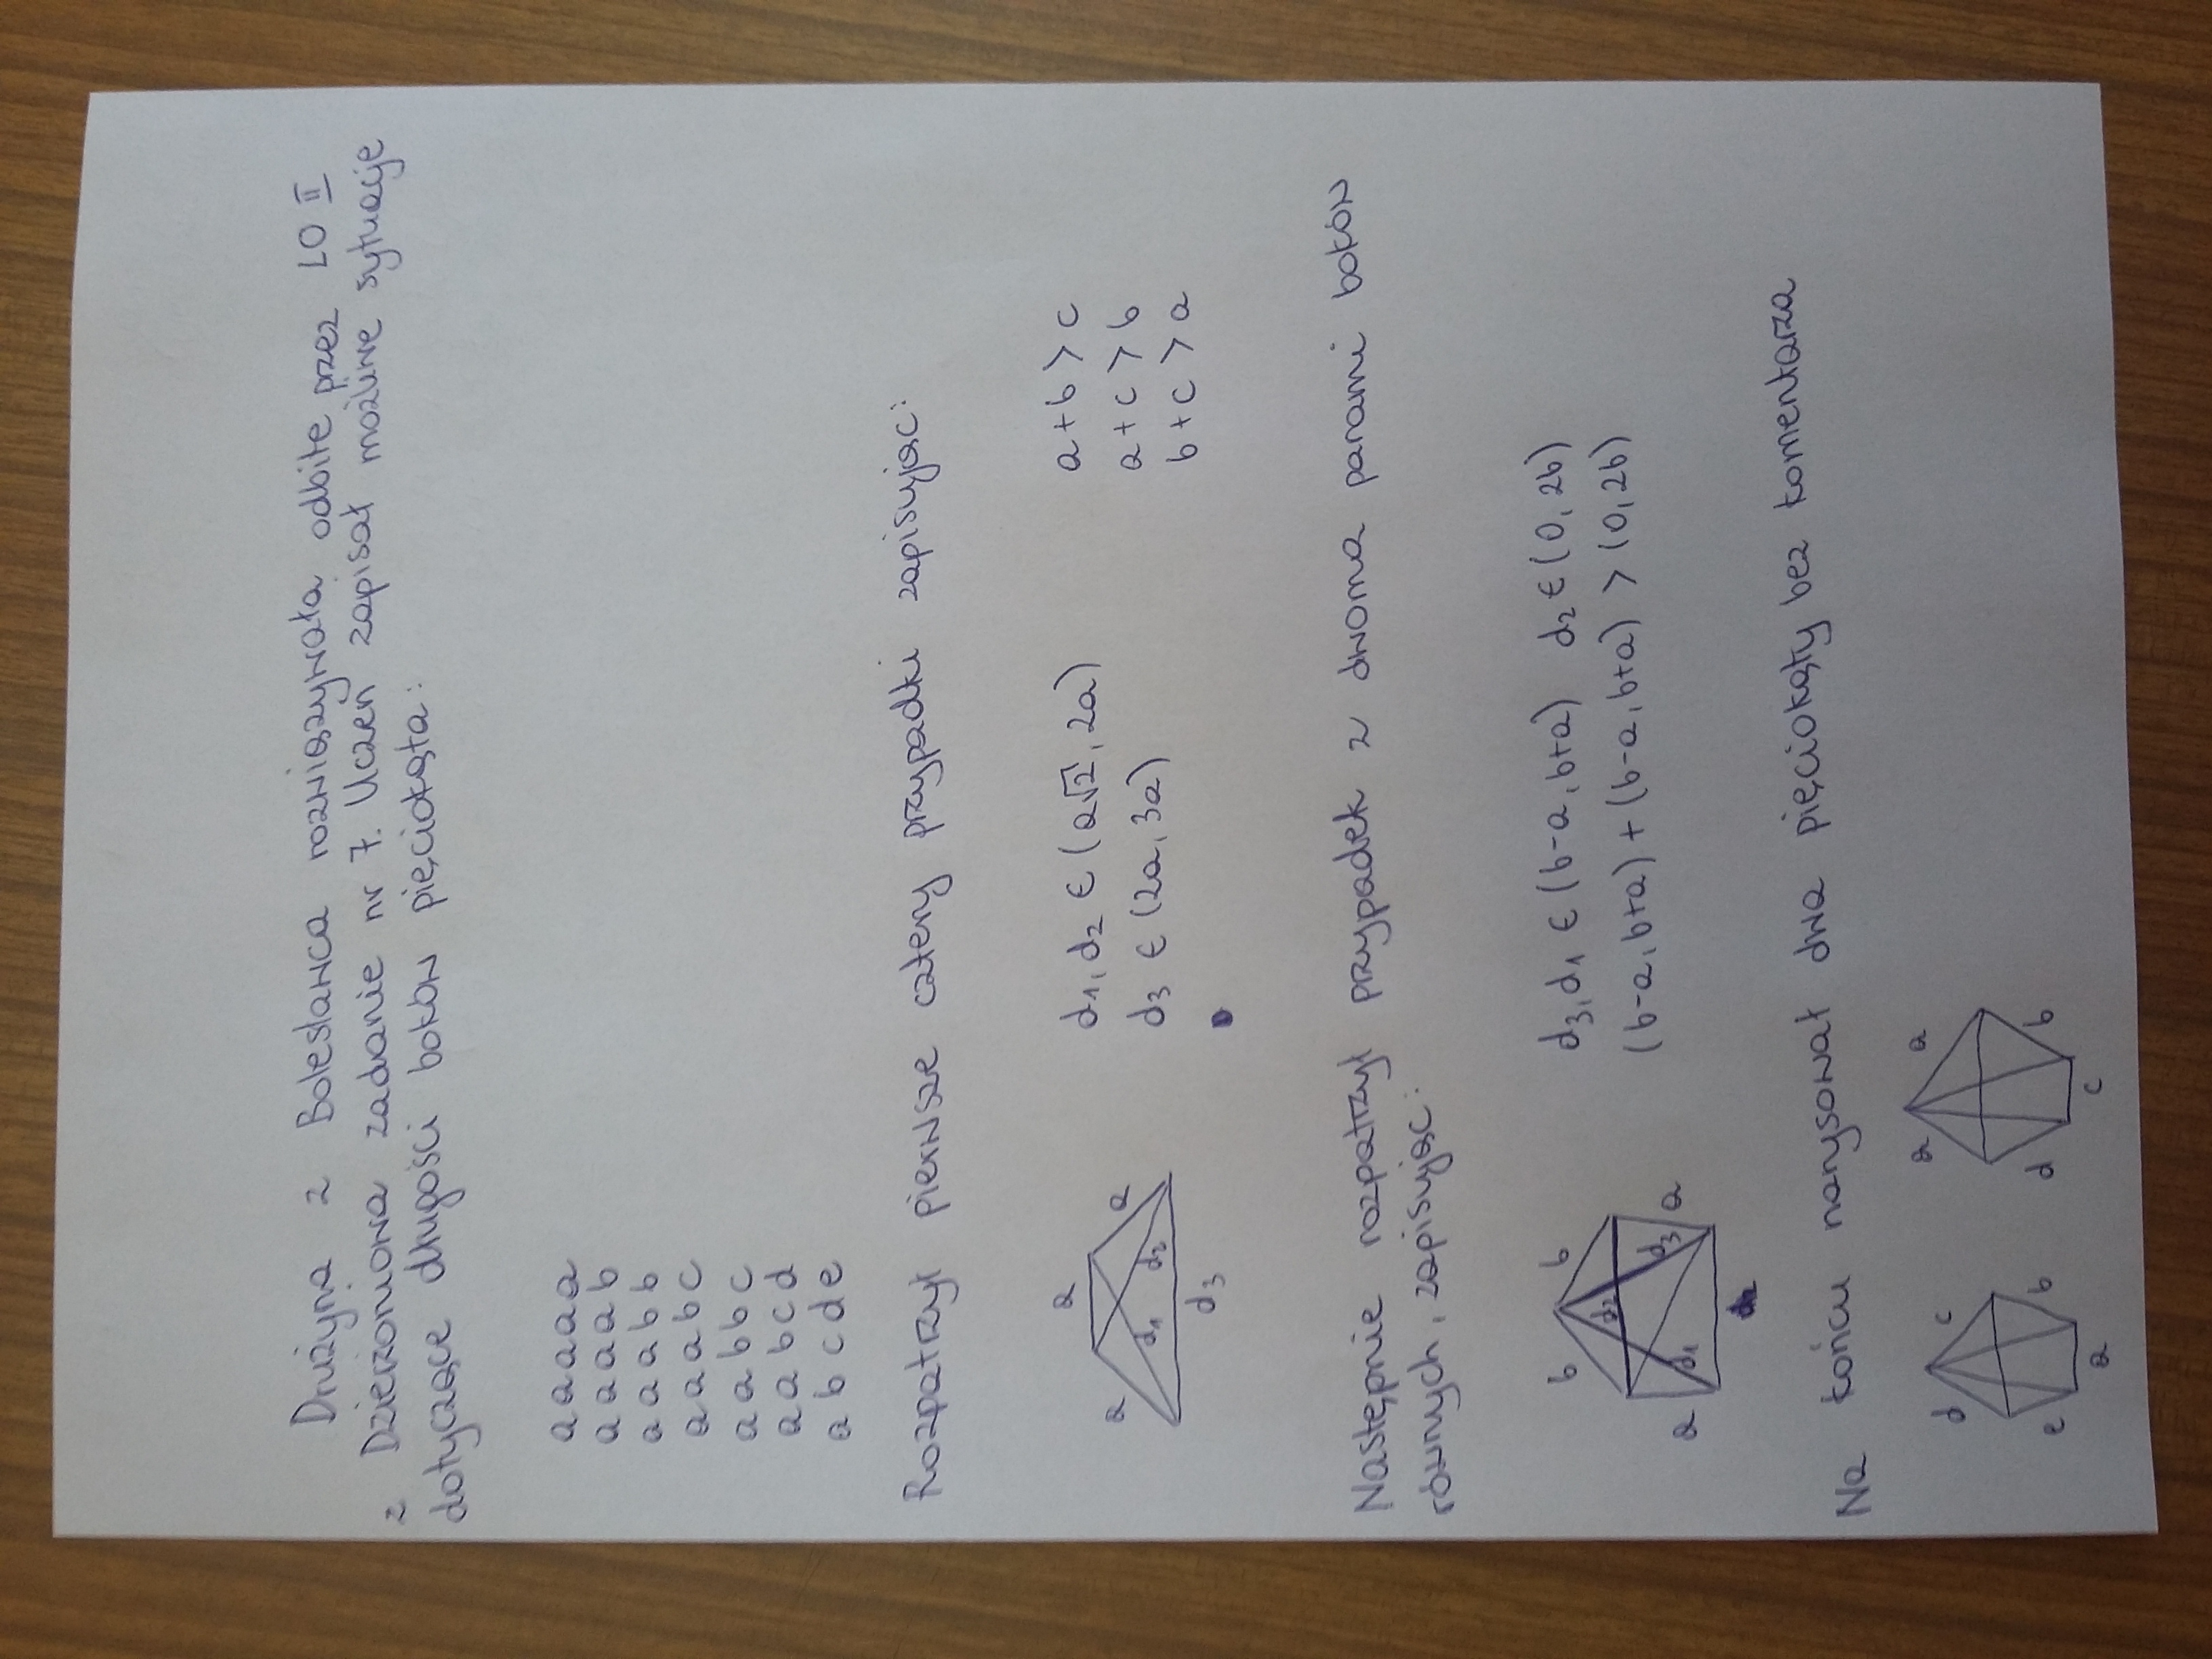 Drużyna z Bolesławca rozwiązywała odbite przez LO II
z Dzierżoniowa zadanie nr 7. Uczeń zapisał możliwe sytuacje
dotyczące długości boków pięciokąta:
a a a a a
a a a a b
a a a b b
a a a b c
a a b b c
a a b c d
a b c d e
Rozpatrzył pierwsze cztery przypadki zapisując:
a a a d1 d2 d3
d1, d2 ∈ (a√2, 2a)
d3 ∈ (2a, 3a)
a + b > c
a + c > b
b + c > a
Następnie rozpatrzył przypadek z dwoma parami boków
równych, zapisując:
b b a a d1 d2 d3
d3, d1 ∈ (b-a, b+a) d2 ∈ (0, 2b)
(b-a, b+a) + (b-a, b+a) > (0, 2b)
Na końcu narysował dwa pięciokąty bez komentarza
d c e b a
a a d b c